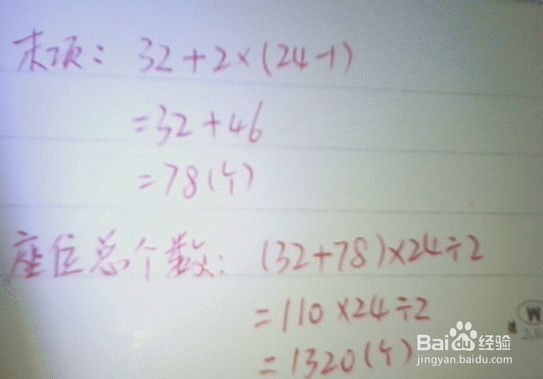 末项: 32+2×(24-1)
=32+46
=78(个)
座位总个数: (32+78)×24÷2
=110×24÷2
=1320(个)
Baidu经验
jingyan.baidu.com